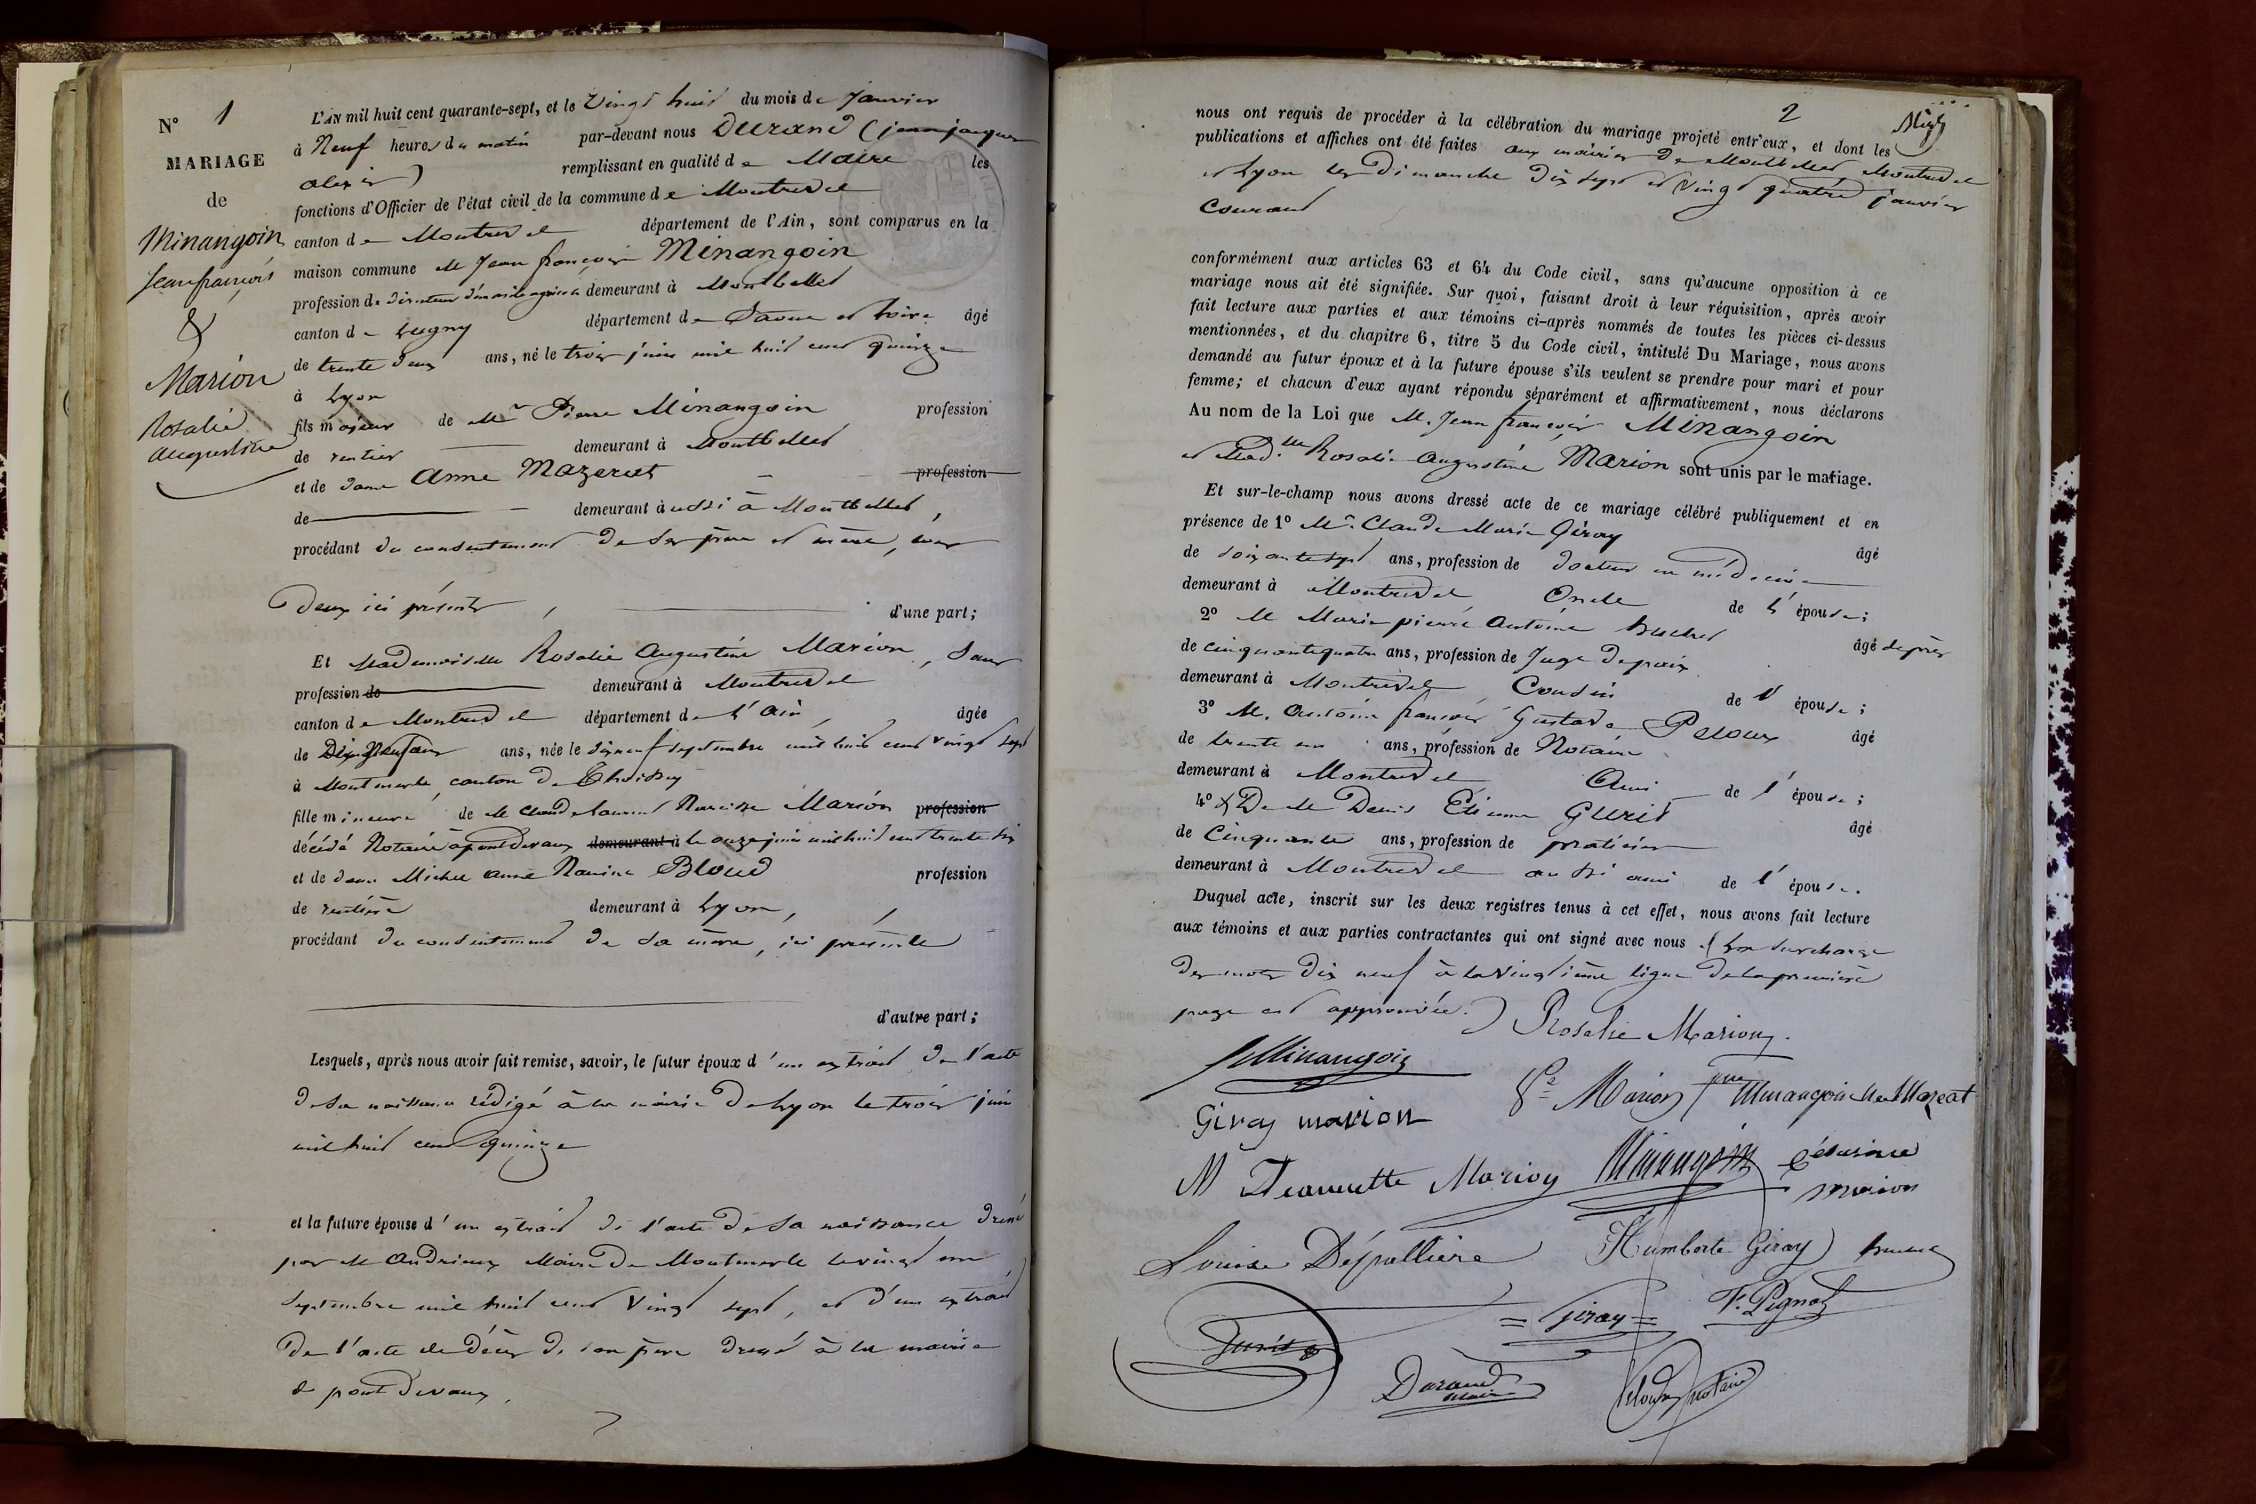 N° 1
MARIAGE
de
Minangoin
Jean françois
&
Marion
Rosalie
augustine
L'AN mil huit cent quarante-sept, et le Vingt huit du mois de Janvier
à Neuf heures du matin par-devant nous Durand (jean jacques
alexis) remplissant en qualité de Maire les
fonctions d'Officier de l'état civil de la commune de Montrevel
canton de Montrevel département de l'Ain, sont comparus en la
maison commune M Jean françois Minangoin
profession de directeur d'un asile agricole demeurant à Montbellet
canton de Lugny département de Saone et Loire âgé
de trente deux ans, né le trois juin mil huit cent quinze
à Lyon
fils majeur de Mr Pierre Minangoin profession
de rentier demeurant à Montbellet
et de dame Anne Mazerat profession
de demeurant à aussi à Montbellet,
procédant du consentement de ses père et mère, tous
deux ici présents, d'une part;
Et Mademoiselle Rosalie Augustine Marion, sans
profession de demeurant à Montrevel
canton de Montrevel département de L'ain, âgée
de Dix Neuf ans ans, née le dixneuf septembre mil huit cent vingt sept
à Montmerle, canton de Thoissey
fille mineure de M Claude Laurent Narcisse Marion profession
décédé Notaire à pontdevaux demeurant à le onze juin mil huit cent trente six
et de dame Michel anne Nanine Bloud profession
de rentière demeurant à Lyon,
procédant du consentement de sa mère, ici présente
d'autre part;
Lesquels, après nous avoir fait remise, savoir, le futur époux d'un extrait de l'acte
de sa naissance rédigé à la mairie de Lyon le trois juin
mil huit cent quinze
et la future épouse d'un extrait de l'acte de sa naissance dressé
par M Andrieux Maire de Montmerle le vingt un
septembre mil huit cent Vingt sept, et d'un extrait
de l'acte de décès de son père dressé à la mairie
de pont devaux.
2
nous ont requis de procéder à la célébration du mariage projeté entr'eux, et dont les
publications et affiches ont été faites aux mairies de Montbellet, Montrevel
et Lyon les dimanche dix sept et vingt quatre janvier
courant
conformément aux articles 63 et 64 du Code civil, sans qu'aucune opposition à ce
mariage nous ait été signifiée. Sur quoi, faisant droit à leur réquisition, après avoir
fait lecture aux parties et aux témoins ci-après nommés de toutes les pièces ci-dessus
mentionnées, et du chapitre 6, titre 5 du Code civil, intitulé Du Mariage, nous avons
demandé au futur époux et à la future épouse s'ils veulent se prendre pour mari et pour
femme; et chacun d'eux ayant répondu séparément et affirmativement, nous déclarons
Au nom de la Loi que M. Jean françois Minangoin
et Mad.lle Rosalie Augustine Marion sont unis par le mariage.
Et sur-le-champ nous avons dressé acte de ce mariage célébré publiquement et en
présence de 1° Mr. Claude Marie Giray âgé
de soixante sept ans, profession de docteur en médecine
demeurant à Montrevel Oncle de L'épouse;
2° M Marie pierre Antoine âgé de près
de cinquantequatre ans, profession de Juge de paix
demeurant à Montrevel, Cousin de l'épouse;
3° M. Antoine françois Gustave Peloux âgé
de trente un ans, profession de Notaire
demeurant à Montrevel Ami de l'épouse;
4° & De M Denis Etienne Gurit âgé
de Cinquante ans, profession de praticien
demeurant à Montrevel aussi ami de l'épouse.
Duquel acte, inscrit sur les deux registres tenus à cet effet, nous avons fait lecture
aux témoins et aux parties contractantes qui ont signé avec nous (La surcharge
des mots dix neuf à la vingtième ligne de la première
page est approuvée.) Rosalie Marion.
JMinangoin
Ve Marion fme Minangoin née Mazerat
Giray marion
M Jeannette Marion Minangoin Césarine
marion
Louise Dépallière Humberte Giray
Giray F. Pignol
Gurit
Durand
maire
Peloux notaire